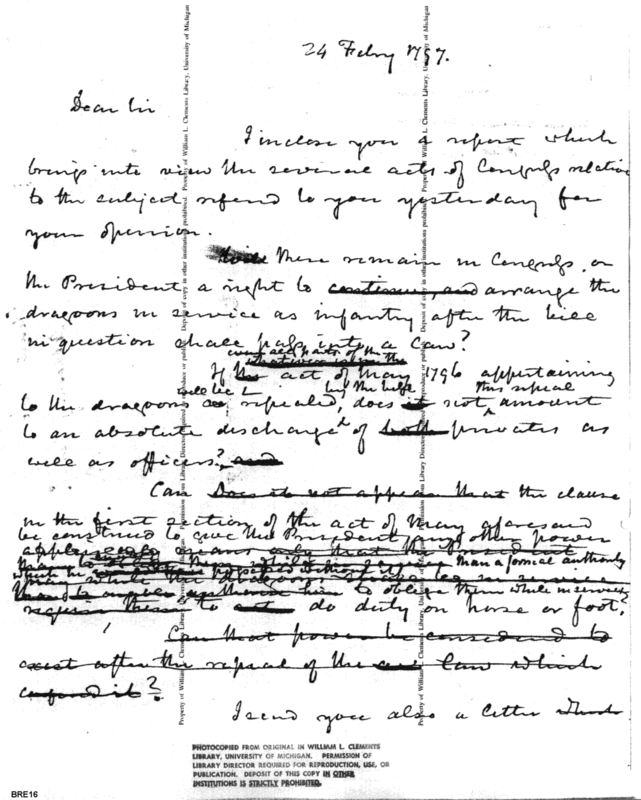 24 Febry 1797.
Dear Sir
I inclose you a report which
brings into view the several acts of Congress relative
to the subject referd to you yesterday for
your opinion.
there remain in Congress, or
the President a right to continue, and arrange the
dragoons in service as infantry after the bill
in question shall pass into a law?
If the act of May 1796 appertaining
will be by the bill this repeal
to the dragoons repealed, does it not amount
to an absolute discharge of both privates as
well as officers? and
Can Does it not appear that the clause
in the first section of the act of May aforesaid
be construed to give the President any other power
than a formal authority
to oblige them while in service
to do duty on horse or foot?
Can that power be considered to
exist after the repeal of the law which
conferd it?
I send you also a letter which
PHOTOCOPIED FROM ORIGINAL IN WILLIAM L. CLEMENTS
LIBRARY, UNIVERSITY OF MICHIGAN. PERMISSION OF
LIBRARY DIRECTOR REQUIRED FOR REPRODUCTION, USE, OR
PUBLICATION. DEPOSIT OF THIS COPY IN OTHER
INSTITUTIONS IS STRICTLY PROHIBITED.
BRE16